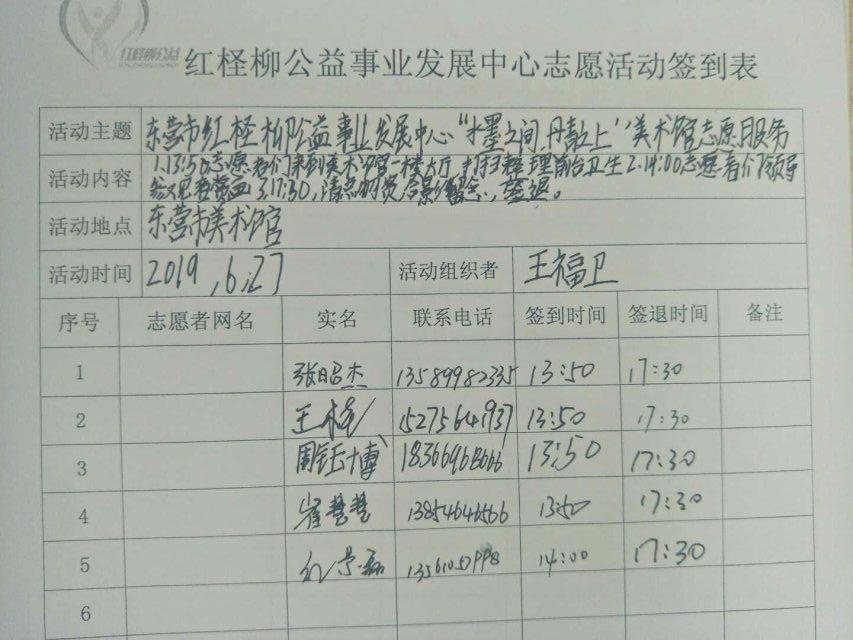 红柽柳公益
红柽柳公益事业发展中心志愿活动签到表
活动主题 东营市红柽柳公益事业发展中心“水墨之间,丹青之上”美术馆志愿服务
活动内容 1.13:50志愿者们来到美术馆一楼大厅,打扫整理前台卫生2.14:00志愿者们领导
3.17:30,清点物资合影留念,签退。
活动地点 东营市美术馆
活动时间 2019,6,27 活动组织者 王福卫
序号 志愿者网名 实名 联系电话 签到时间 签退时间 备注
1 张昭杰 13589982335 13:50 17:30
2 王 15275641937 13:50 17:30
3 周钰博 18366968666 13:50 17:30
4 崔慧慧 13854646566 13:50 17:30
5 13561057998 14:00 17:30
6